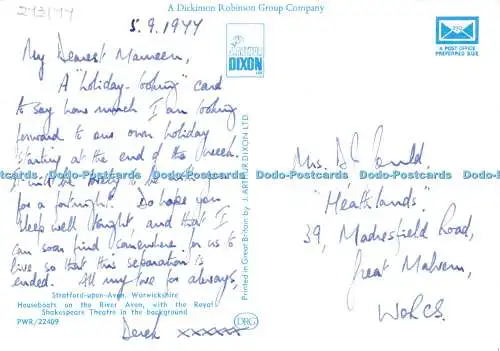 A Dickinson Robinson Group Company
273/77
5.9.1977
My Dearest Maureen,
A "holiday-looking" card
to say how much I am looking
forward to our own holiday
starting at the end of the week.
It will be lovely to be
for a fortnight. Do hope you
sleep well tonight, and that I
can soon find somewhere for us to
live, so that this separation is
ended. All my love for always,
Derek xxxxxx
Stratford-upon-Avon, Warwickshire
Houseboats on the River Avon, with the Royal
Shakespeare Theatre in the background
PWR/22409
J. ARTHUR DIXON LTD
Printed in Great Britain by J. ARTHUR DIXON LTD.
DRG
A POST OFFICE
PREFERRED SIZE
Mrs. D Gould,
"Heathlands"
39, Madresfield Road,
Great Malvern,
Worcs.
Dodo-Postcards Dodo-Postcards Dodo-Postcards Dodo-Postcards